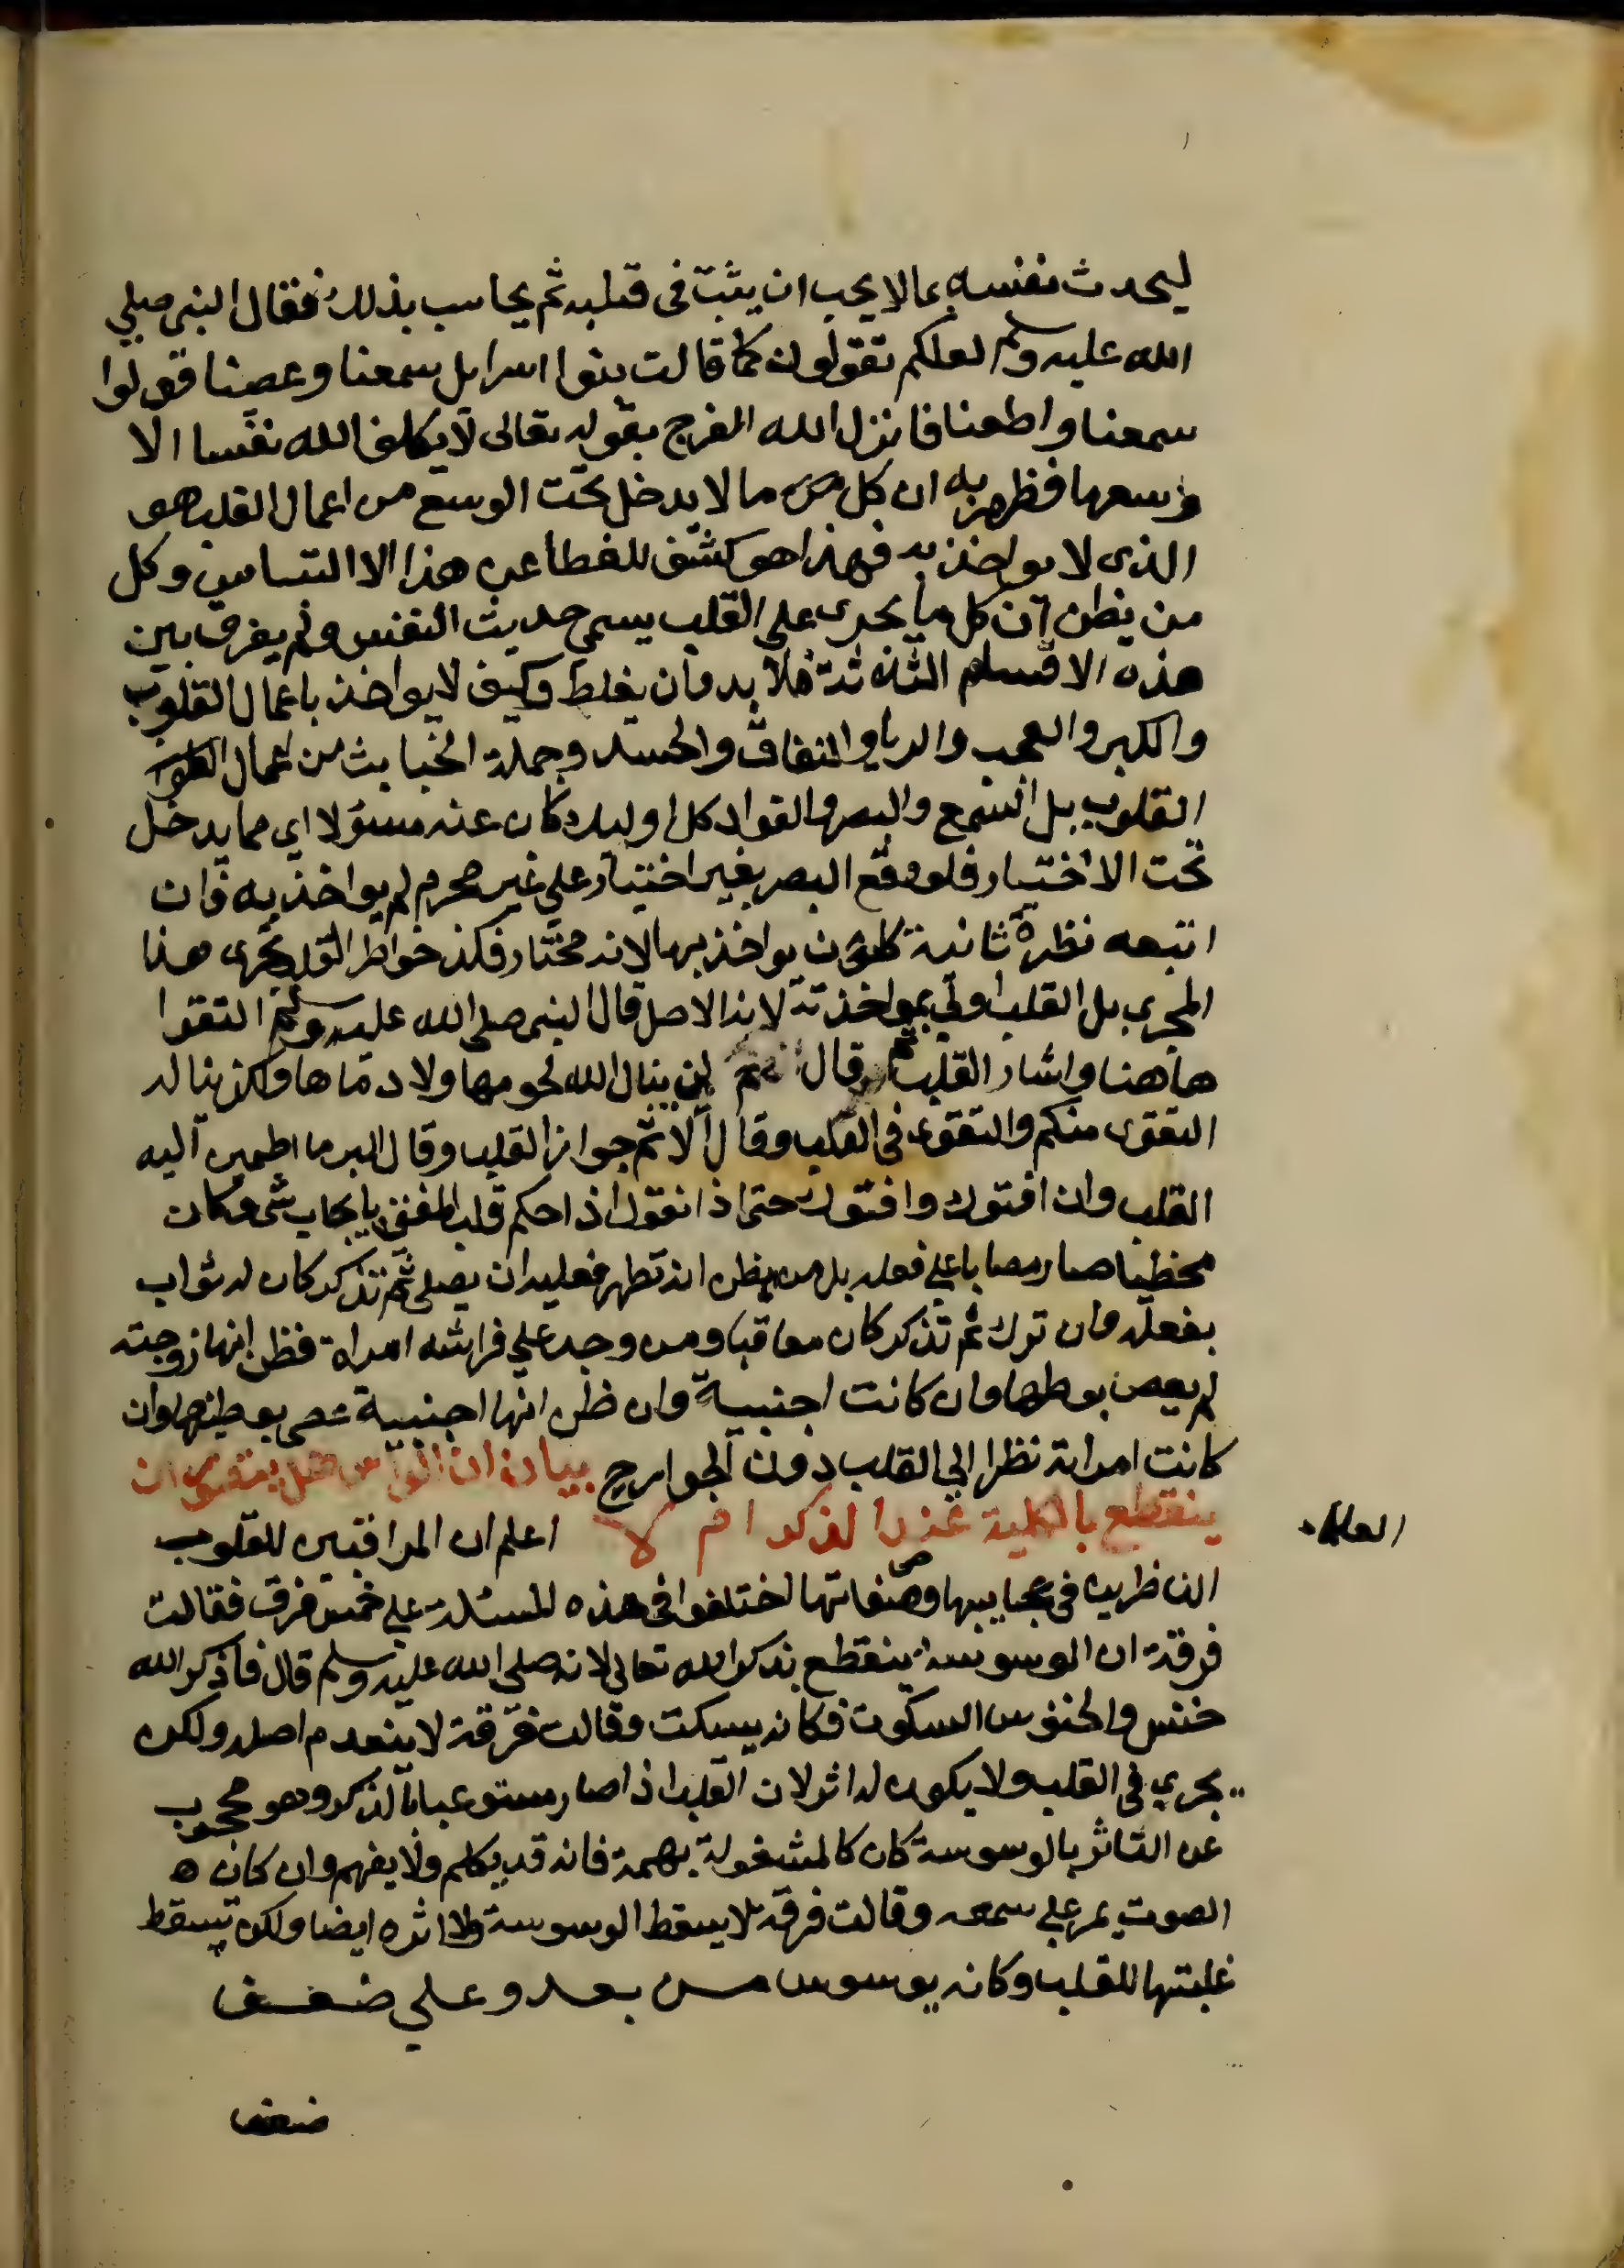 ليحدث نفسه بما لا يحب ان يثبت فى قلبه ثم يحاسب بذلك فقال النبى صلي
الله عليه وسلم لعلكم تقولون كما قالت بنوا اسرايل سمعنا وعصينا قولوا
سمعنا واطعنا فانزل الله الفرج بقوله تعالى لا يكلف الله نفسا الا
وسعها فظهر به ان كل ما لا يدخل تحت الوسع من اعمال القلب هو
الذى لا يواخذ به فهذا هو كشف الغطا عن هذا الالتباس وكل
من يظن ان كل ما يجرى على القلب يسمى حديث النفس ولم يفرق بين
هذه الاقسام الثلاثة فلا بد وان يغلط وكيف لا يواخذ باعمال القلوب
والكبر والعجب والريا والنفاق والحسد وجملة الخبايث من اعمال
القلوب بل السمع والبصر والفواد كل اوليك كان عنه مسؤلا اى مما يدخل
تحت الاختيار فلو وقع البصر بغير اختيار علي غير محرم لم يواخذ به فان
اتبعه نظرة ثانية كان يواخذ بها لانه مختار فكذ خواطر القلب تجرى هذا
المجرى بل القلب اولي بمواخذته لانه الاصل قال النبى صلى الله عليه وسلم التقوا
هاهنا واشار القلب وقال لن ينال الله لحومها ولا دماها ولكن يناله
التقوى منكم والتقوى فى القلب وقال الاثم جواز القلب وقال البر ما اطمين اليه
القلب وان افتوك وافتوك حتى اذا نقول اذا حكم قلب المفتى بايجاب شى وكان
مخطيا صار مصابا علي فعله بل من يظن انه تطهر فعليه ان يصلى ثم تذكر كان له ثواب
بفعله فان ترك ثم تذكر كان معاقبا ومن وجد علي فراشه امراة فظن انها زوجته
لم يعص بوطها وان كانت اجنبية وان ظن انها اجنبية عصى بوطيها وان
كانت امراته نظرا الي القلب دون الجوارح بيان ان الوسواس هل يتصور ان
ينقطع بالكلية عند الذكر ام لا اعلم ان المراقبين للقلوب
العلما
الناظرين فى عجايبها وصفاتها اختلفوا فى هذه المسئلة علي خمس فرق فقالت
فرقة ان الوسوسة ينقطع بذكر الله تعالى لانه صلى الله عليه وسلم قال فاذكر الله
خنس والخنوس السكوت فكانه يسكت وقالت فرقة لا ينعدم اصله ولكن
يجري فى القلب ولا يكون له اثر لان القلب اذا صار مستوعبا بالذكر وهو محجوب
عن التاثر بالوسوسة كان كالمشغولة بهمة فانه قد يكلم ولا يفهم وان كان
الصوت يمر علي سمعه وقالت فرقة لا يسقط الوسوسة ولا اثره ايضا ولكن تسقط
غلبتها للقلب وكانه يوسوس من بعد وعلي ضعف
ضعف